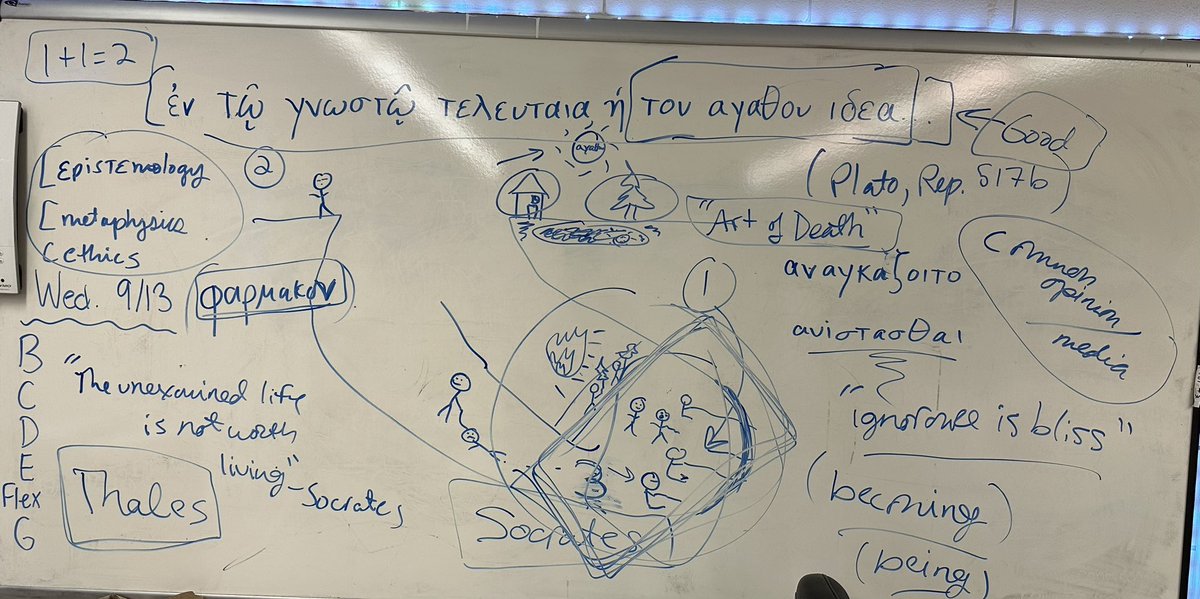 1+1=2
ἐν τῷ γνωστῷ τελευταια ἡ του αγαθου ιδεα.
Good
(Plato, Rep. 517b)
[Epistemology
[metaphysics
[ethics
2
αγαθ
"Art of Death"
αναγκαζοιτο
ανιστασθαι
Common
opinion
media
Wed. 9/13
φαρμακον
1
B
C
D
E
Flex
G
"The unexamined life
is not worth
living" -Socrates
Thales
Socrates
"ignorance is bliss"
(becoming)
(being)